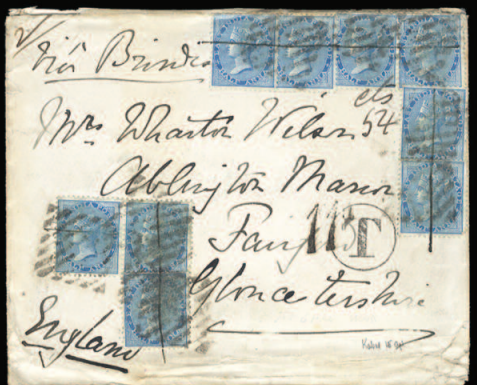 Via Brindisi
cts
54
Mrs Wharton Wilson
Ablington Manor
Gloucestershire
T
England